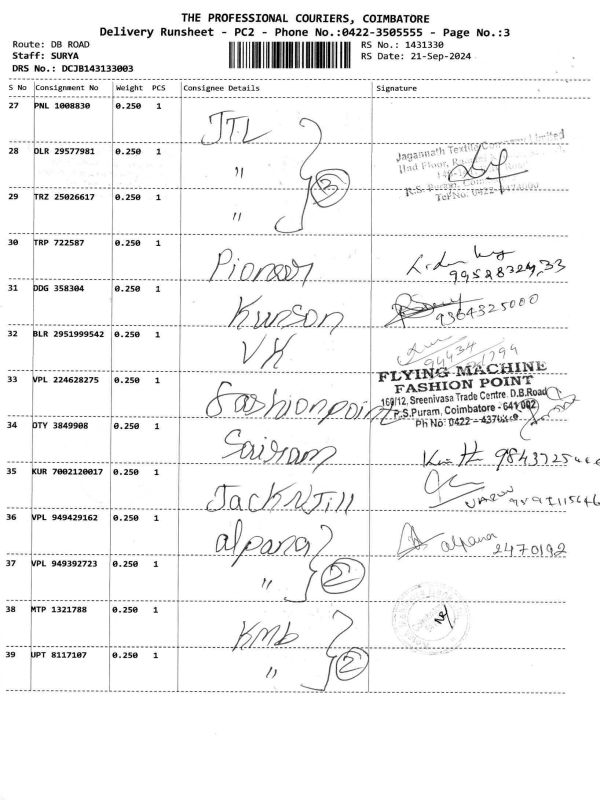 THE PROFESSIONAL COURIERS, COIMBATORE
Delivery Runsheet - PC2 - Phone No.:0422-3505555 - Page No.:3
Route: DB ROAD
RS No.: 1431330
Staff: SURYA
RS Date: 21-Sep-2024
DRS No.: DCJB143133003
S No Consignment No Weight PCS Consignee Details Signature
27 PNL 1008830 0.250 1 JTL
28 DLR 29577981 0.250 1 "
Jagannath Textile Company Limited
29 TRZ 25026617 0.250 1 " 3
30 TRP 722587 0.250 1 Pioneer
31 DDG 358304 0.250 1 Kunson 9364325000
32 BLR 2951999542 0.250 1 VK
33 VPL 224628275 0.250 1 Fashionpoint
FLYING MACHINE
FASHION POINT
169/12, Sreenivasa Trade Centre, D.B.Road
R.S.Puram, Coimbatore - 641 002
34 OTY 3849908 0.250 1 Sairam
35 KUR 7002120017 0.250 1 JackNJill
36 VPL 949429162 0.250 1 alpana alpana 2470192
37 VPL 949392723 0.250 1 " 2
38 MTP 1321788 0.250 1 KMB
39 UPT 8117107 0.250 1 " 2